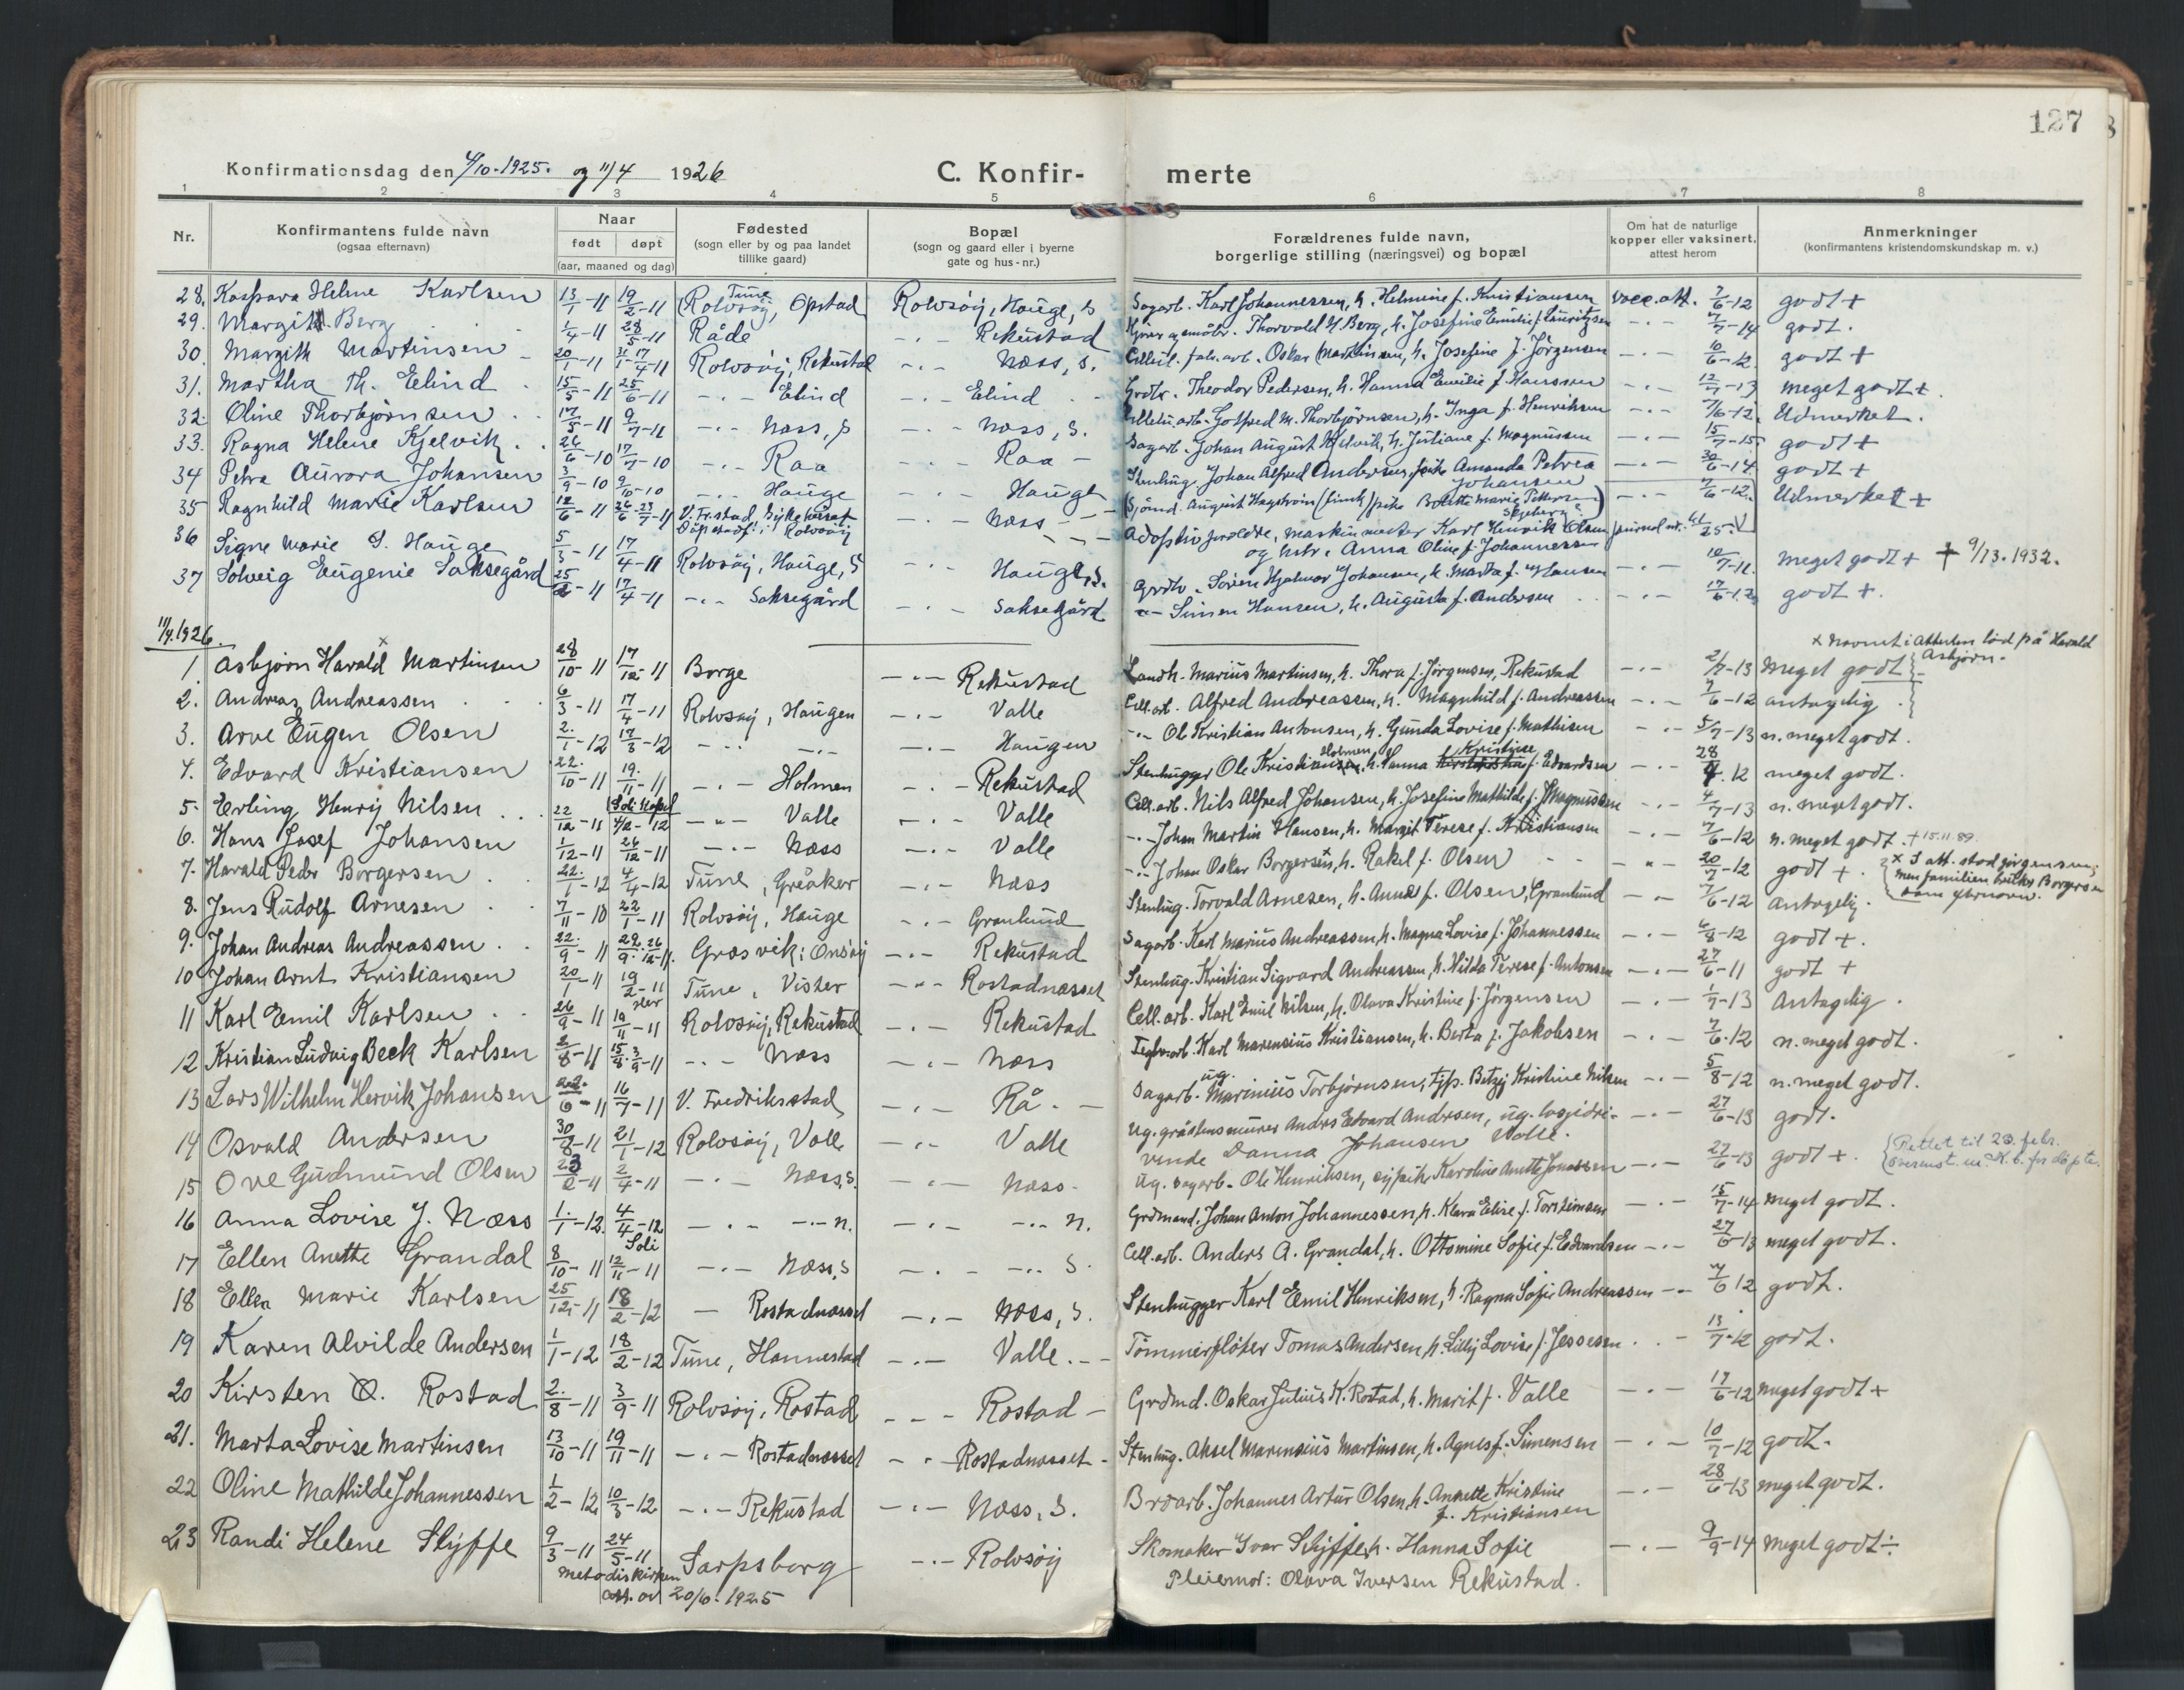 127
Konfirmationsdag den 4/10.1925. og 11/4 1926
C. Konfirmerte
1 2 3 4 5 6 7 8
Nr.
Konfirmantens fulde navn (ogsaa efternavn)
Naar født døpt (aar, maaned og dag)
Fødested (sogn eller by og paa landet tillike gaard)
Bopæl (sogn og gaard eller i byerne gate og hus-nr.)
Forældrenes fulde navn, borgerlige stilling (næringsvei) og bopæl
Om hat de naturlige kopper eller vaksinert, attest herom
Anmerkninger (konfirmantens kristendomskundskap m. v.)
28. Kaspara Helene Karlsen 13/1-11 19/2-11 Rolvsøy, Tune Opstad Rolvsøy, Hauge, S Sagarb. Karl Johannessen, h. Helmine f. Kristiansen vacc. att. 7/6-12 godt +
29. Margit Berg 1/4-11 28/5-11 Råde -.- Rekustad Thorvald Berg, h. Josefine Emilie f. Lauritzen -.- 7/7-14 godt.
30. Margith Martinsen 20/1-11 17/4-11 Rolvsøy, Rekustad -.- Næss, S. Cellul. fabr. arb. Oskar Martinsen, h. Josefine f. Jørgensen -.- 10/6-12 godt +
31. Martha Th. Elind 15/5-11 25/6-11 -.- Elind -.- Elind Grdbr. Theodor Pedersen, h. Hanna Emilie f. Hanssen -.- 12/7-13 meget godt +
32. Oline Thorbjørnsen 17/5-11 9/7-11 -.- Næss, S -.- Næss, S. Cellulu. arb. Gotfred M. Thorbjørnsen, h. Inga f. Henriksen -.- 7/6-12. Udmerket.
33. Ragna Helene Kjelvik 26/6-10 17/7-10 -.- Raa -.- Raa - Sagarb. Johan August Kjelvik, h. Juliane f. Magnussen -.- 15/7-15 godt +
34 Petra Aurora Johansen 3/9-10 9/10-10 -.- Hauge -.- Hauge Stenhug. Johan Alfred Andersen, pike Amanda Petrea Johansen -.- 30/6-14 godt +
35 Ragnhild Marie Karlsen 12/6-11 26/6 23/7-11 V. Fr.stad Sykehuset Døpt i Rolvsøy -.- Næss (Sjømd. August Hagstrøm (finsk) pike Borette Marie Pettersen Skjeberg) -.- 7/6-12. Udmerket +
Adoptivforældre, maskinmester Karl Henrik Olsen og hstr. Anna Oline f. Johannessen journal nr. 41/25. V
36 Signe Marie S. Hauge 5/3-11 17/4-11 Rolvsøy, Hauge, S -.- Hauge, S. Grdbr. Søren Hjalmar Johansen, h. Marta f. Hansen -.- 10/7-11. meget godt + † 9/13.1932.
37 Solveig Eugenie Saksegård 25/2-11 17/4-11 -.- Saksegård -.- Saksegård -.- Simen Hansen, h. Augusta f. Andersen -.- 17/6-12 godt +.
11/4.1926.
x navnet i attesten lød på Harald Asbjørn.
1. Asbjørn Harald x Martinsen 28/10-11 17/12-11 Borge -.- Rekustad Landh. Marius Martinsen, h. Thora f. Jørgensen, Rekustad -.- 2/7-13 Meget godt
2. Andreas Andreassen 6/3-11 17/4-11 Rolvsøy, Haugen -.- Valle Cell. arb. Alfred Andreassen, h. Magnhild f. Andreassen -.- 7/6-12 antagelig
3. Arve Eugen Olsen 2/1-12 17/3-12 -.- -.- -.- Haugen -.- Ole Kristian Antonsen, h. Gunda Lovise f. Mathisen -.- 5/7-13 n. meget godt.
4. Edvard Kristiansen 22/10-11 19/11-11 -.- Holmen -.- Rekustad Stenhugger Ole Kristiansen, Holmen, h. Hanna Kristine f. Edvardsen -.- 28/7.12 meget godt.
5. Erling Henry Nilsen 22/12-11 Soli kapel 4/2-12 -.- Valle -.- Valle Cell. arb. Nils Alfred Johansen, h. Josefine Mathilde f. Magnussen -.- 4/7-13 n. meget godt.
6. Hans Josef Johansen 1/12-11 26/12-11 -.- Næss -.- Valle -.- Johan Martin Hansen, h. Margit Terese f. Kristiansen -.- 7/6-12 n. meget godt. † 15.11.89.
7. Harald Peder Borgersen 22/1-12 4/4-12 Tune, Greåker -.- Næss -.- Johan Oskar Borgersen x, h. Rakel f. Olsen - " - 20/7-12 godt +. x I att. stod Jørgensen, men familien bruker Borgersen som efternavn.
8. Jens Rudolf Arnesen 7/11-10 22/1-11 Rolvsøy, Hauge -.- Granlund Stenhug. Torvald Arnesen, h. Anna f. Olsen, Granlund -.- 7/6-12 antagelig.
9. Johan Andreas Andreassen 22/9-11 29/9. 26/12-11. Græsvik i Onsøy -.- Rekustad Sagarb. Karl Marius Andreassen, h. Magna Lovise f. Johannessen -.- 6/8-12 godt +.
10 Johan Arnt Kristiansen 20/1-11 19/2-11 Tune, Vister -.- Rostadnæsset Stenhug. Kristian Sigvard Andreassen, h. Hilda Terese f. Antonsen -.- 27/6-11 godt +
11 Karl Emil Karlsen 26/9-11 19/11-11 Rolvsøy, Rekustad -.- Rekustad Cell. arb. Karl Emil Nilsen, h. Olava Kristine f. Jørgensen -.- 1/7-13 Antagelig.
12 Kristian Ludvig Beck Karlsen 2/8-11 15/8. 3/9-11 -.- Næss -.- Næss Teglv.arb. Karl Marensius Kristiansen, h. Berta f. Jakobsen -.- 7/6.12 n. meget godt.
13 Lars Wilhelm Hervik Johansen 22/6-11 16/7-11 V. Fredriksstad -.- Rå. - Sagarb. ug. Marinius Torbjørnsen, tjp. Betzy Kristine Nilsen -.- 5/8-12 n. meget godt.
14 Osvald Andersen 30/8-11 21/1-12 Rolvsøy, Valle -.- Valle Ug. gråstensmurer Anders Edvard Andersen, ug. losjedrivende Danna Johansen Valle. -.- 27/6-13 godt.
15 Ove Gudmund Olsen 23/2-11 2/4-11 -.- Næss, S. -.- Næss. Ug. sagarb. Ole Henriksen, sypike Karoline Anette Jonassen -.- 27/6-13 godt +. {Rettet til 23. febr. overenst. m. K.b. for døpte.
16 Anna Lovise J. Næss 1/1-12. 4/4-12 -.- -.- n. -.- -.- n. Grdmand. Johan Anton Johannessen, h. Klara Elise f. Torstensen -.- 15/7-14 meget godt.
17 Ellen Anette Grandal 8/10-11 Soli 12/11-11 -.- Næss, S -.- -.- S. Cell. arb. Anders A. Grandal, h. Ottomine Sofie f. Edvardsen -.- 27/6-13 meget godt.
18 Ellen Marie Karlsen 25/12-11 18/2-12 - Rostadnæsset -.- Næss, S. Stenhugger Karl Emil Henriksen, h. Ragna Sofie Andreassen -.- 7/6 12 godt.
19 Karen Alvilde Andersen 1/1-12 18/2-12 Tune, Hannestad -.- Valle.-- Tømmerfløter Tomas Andersen, h. Lilly Lovise f. Jessesen . . - 13/7-12 godt.
20 Kirsten O. Rostad 2/8-11 3/9-11 Rolvsøy, Rostad --- Rostad - Grdmd. Oskar Julius K. Rostad, h. Marit f. Valle -.- 17/6-12 meget godt +
21. Marta Lovise Martinsen 13/10-11 19/11-11 -.- Rostadnæsset -.- Rostadnæsset - Stenhug. Aksel Marensius Martinsen, h. Agnes f. Simensen -.- 10/7-12 godt.
22 Oline Mathilde Johannessen 1/2-12 10/3-12 -.- Rekustad -.- Næss, S. Brdarb. Johannes Artur Olsen, h. Annette Kristine f. Kristiansen -.- 28/6-13 meget godt.
23 Randi Helene Slyffe 9/3-11 24/5-11 Sarpsborg -.- Rolvsøy Skomaker Ivar Slyffe, h. Hanna Sofie -.- 9/9-14 meget godt ÷
metodistkirken att. av 20/6.1925
Pleiemor: Olava Iversen Rekustad.